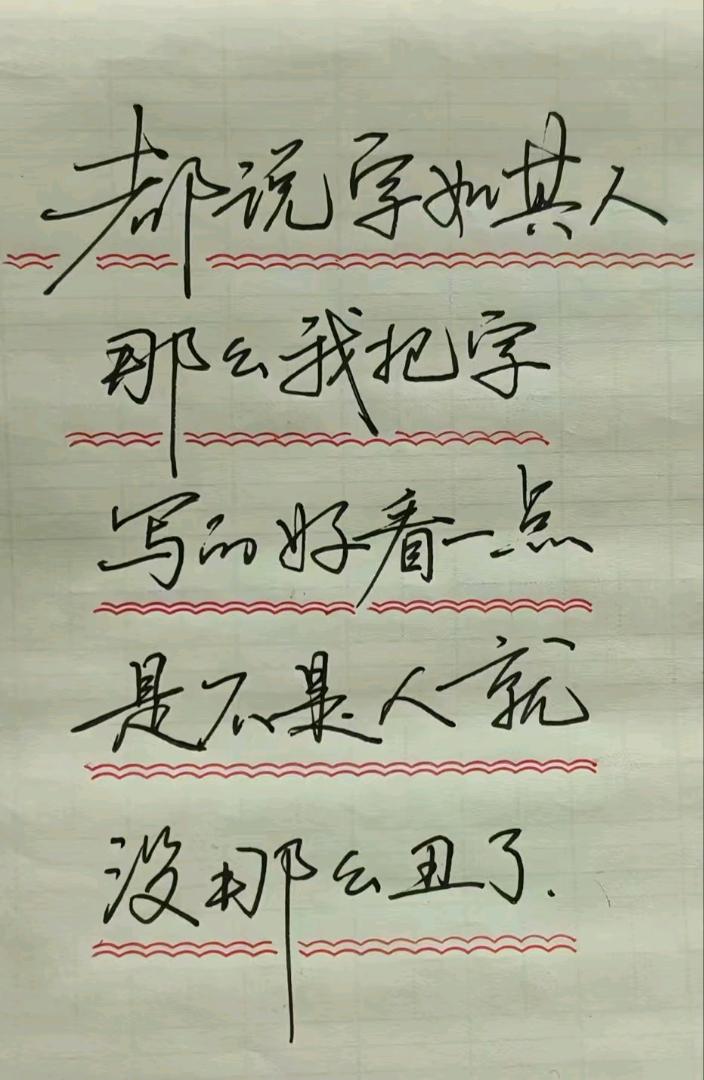 都说字如其人
那么我把字
写的好看一点
是不是人就
没那么丑了.